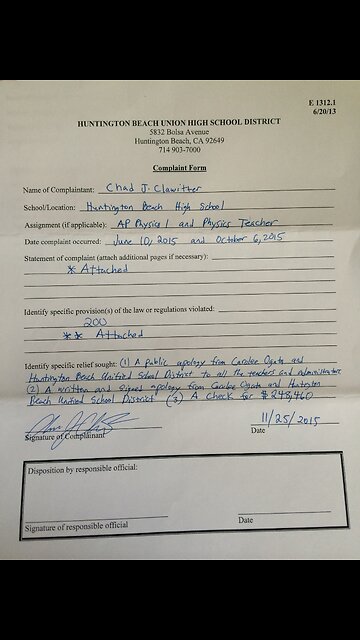 E 1312.1
6/20/13
HUNTINGTON BEACH UNION HIGH SCHOOL DISTRICT
5832 Bolsa Avenue
Huntington Beach, CA 92649
714 903-7000
Complaint Form
Name of Complainant: Chad J. Clawitter
School/Location: Huntington Beach High School
Assignment (if applicable): AP Physics 1 and Physics Teacher
Date complaint occurred: June 10, 2015 and October 6, 2015
Statement of complaint (attach additional pages if necessary):
* Attached
Identify specific provision(s) of the law or regulations violated:
200
** Attached
Identify specific relief sought: (1) A Public apology from Carolee Ogata and
Huntington Beach Unified School District to all the teachers and administrators
(2) A written and signed apology from Carolee Ogata and Huntington
Beach Unified School District (3) A check for $248,460
11/25/2015
Signature of Complainant
Date
Disposition by responsible official:
Signature of responsible official
Date